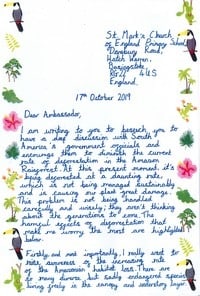 St. Mark's Church
of England Primary School
Danebury Road,
Hatch Warren,
Basingstoke
RG22 4US
England.
17th October 2019
Dear Ambassador,
I am writing to you to beseech you to
have a deep discussion with South
America's government officials and
encourage them to diminish the current
rate of deforestation in the Amazon
Rainforest. At this present moment, it's
being decimated at a daunting rate,
which is not being managed sustainably
and is causing our planet great damage.
This problem is not being handled
carefully and wisely; they aren't thinking
about the generations to come. The
harmful effects of deforestation that
make me worry the most are highlighted
below.
Firstly, and most importantly, I really want to
raise awareness of the increasing rate
of the Amazonian habitat loss. There are
so many diverse but sadly endangered species
living freely in the canopy and understory layer